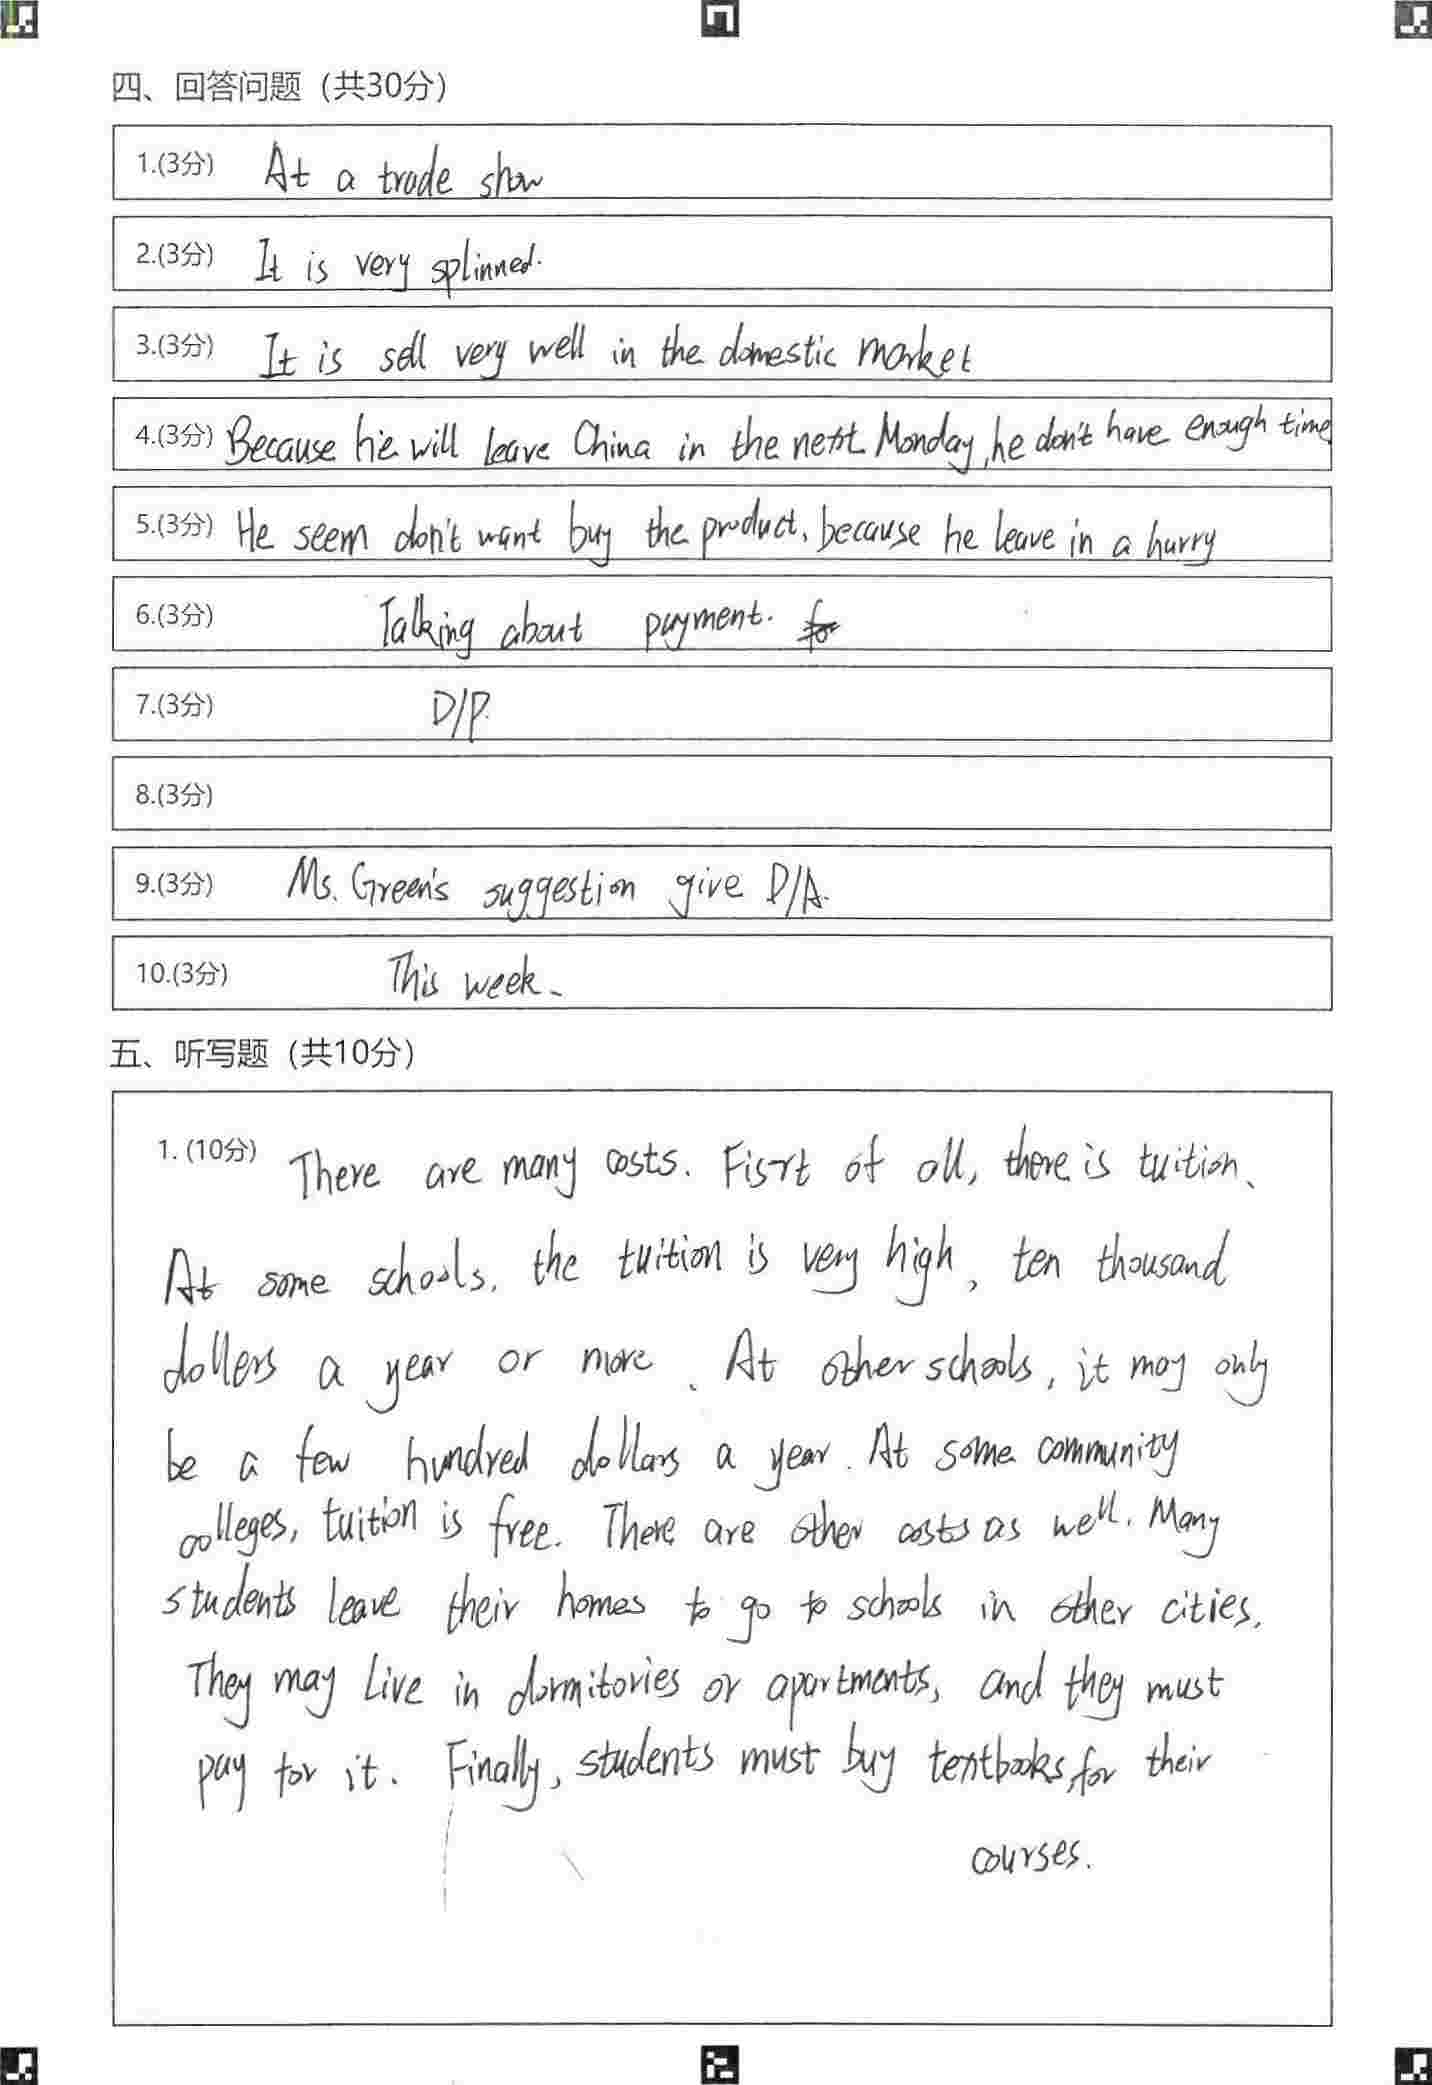 四、回答问题（共30分）
1.(3分) At a trade show
2.(3分) It is very splinned.
3.(3分) It is sell very well in the domestic market
4.(3分) Because he will leave China in the next Monday, he don't have enough time
5.(3分) He seem don't want buy the product, because he leave in a hurry
6.(3分) Talking about payment. for
7.(3分) D/P.
8.(3分)
9.(3分) Ms. Green's suggestion give D/A.
10.(3分) This week.
五、听写题（共10分）
1. (10分) There are many costs. Fisrt of all, there is tuition.
At some schools, the tuition is very high, ten thousand
dollers a year or more. At other schools, it may only
be a few hundred dollars a year. At some community
colleges, tuition is free. There are other costs as well. Many
students leave their homes to go to schools in other cities.
They may live in dormitories or apartments, and they must
pay for it. Finally, students must buy textbooks, for their
courses.